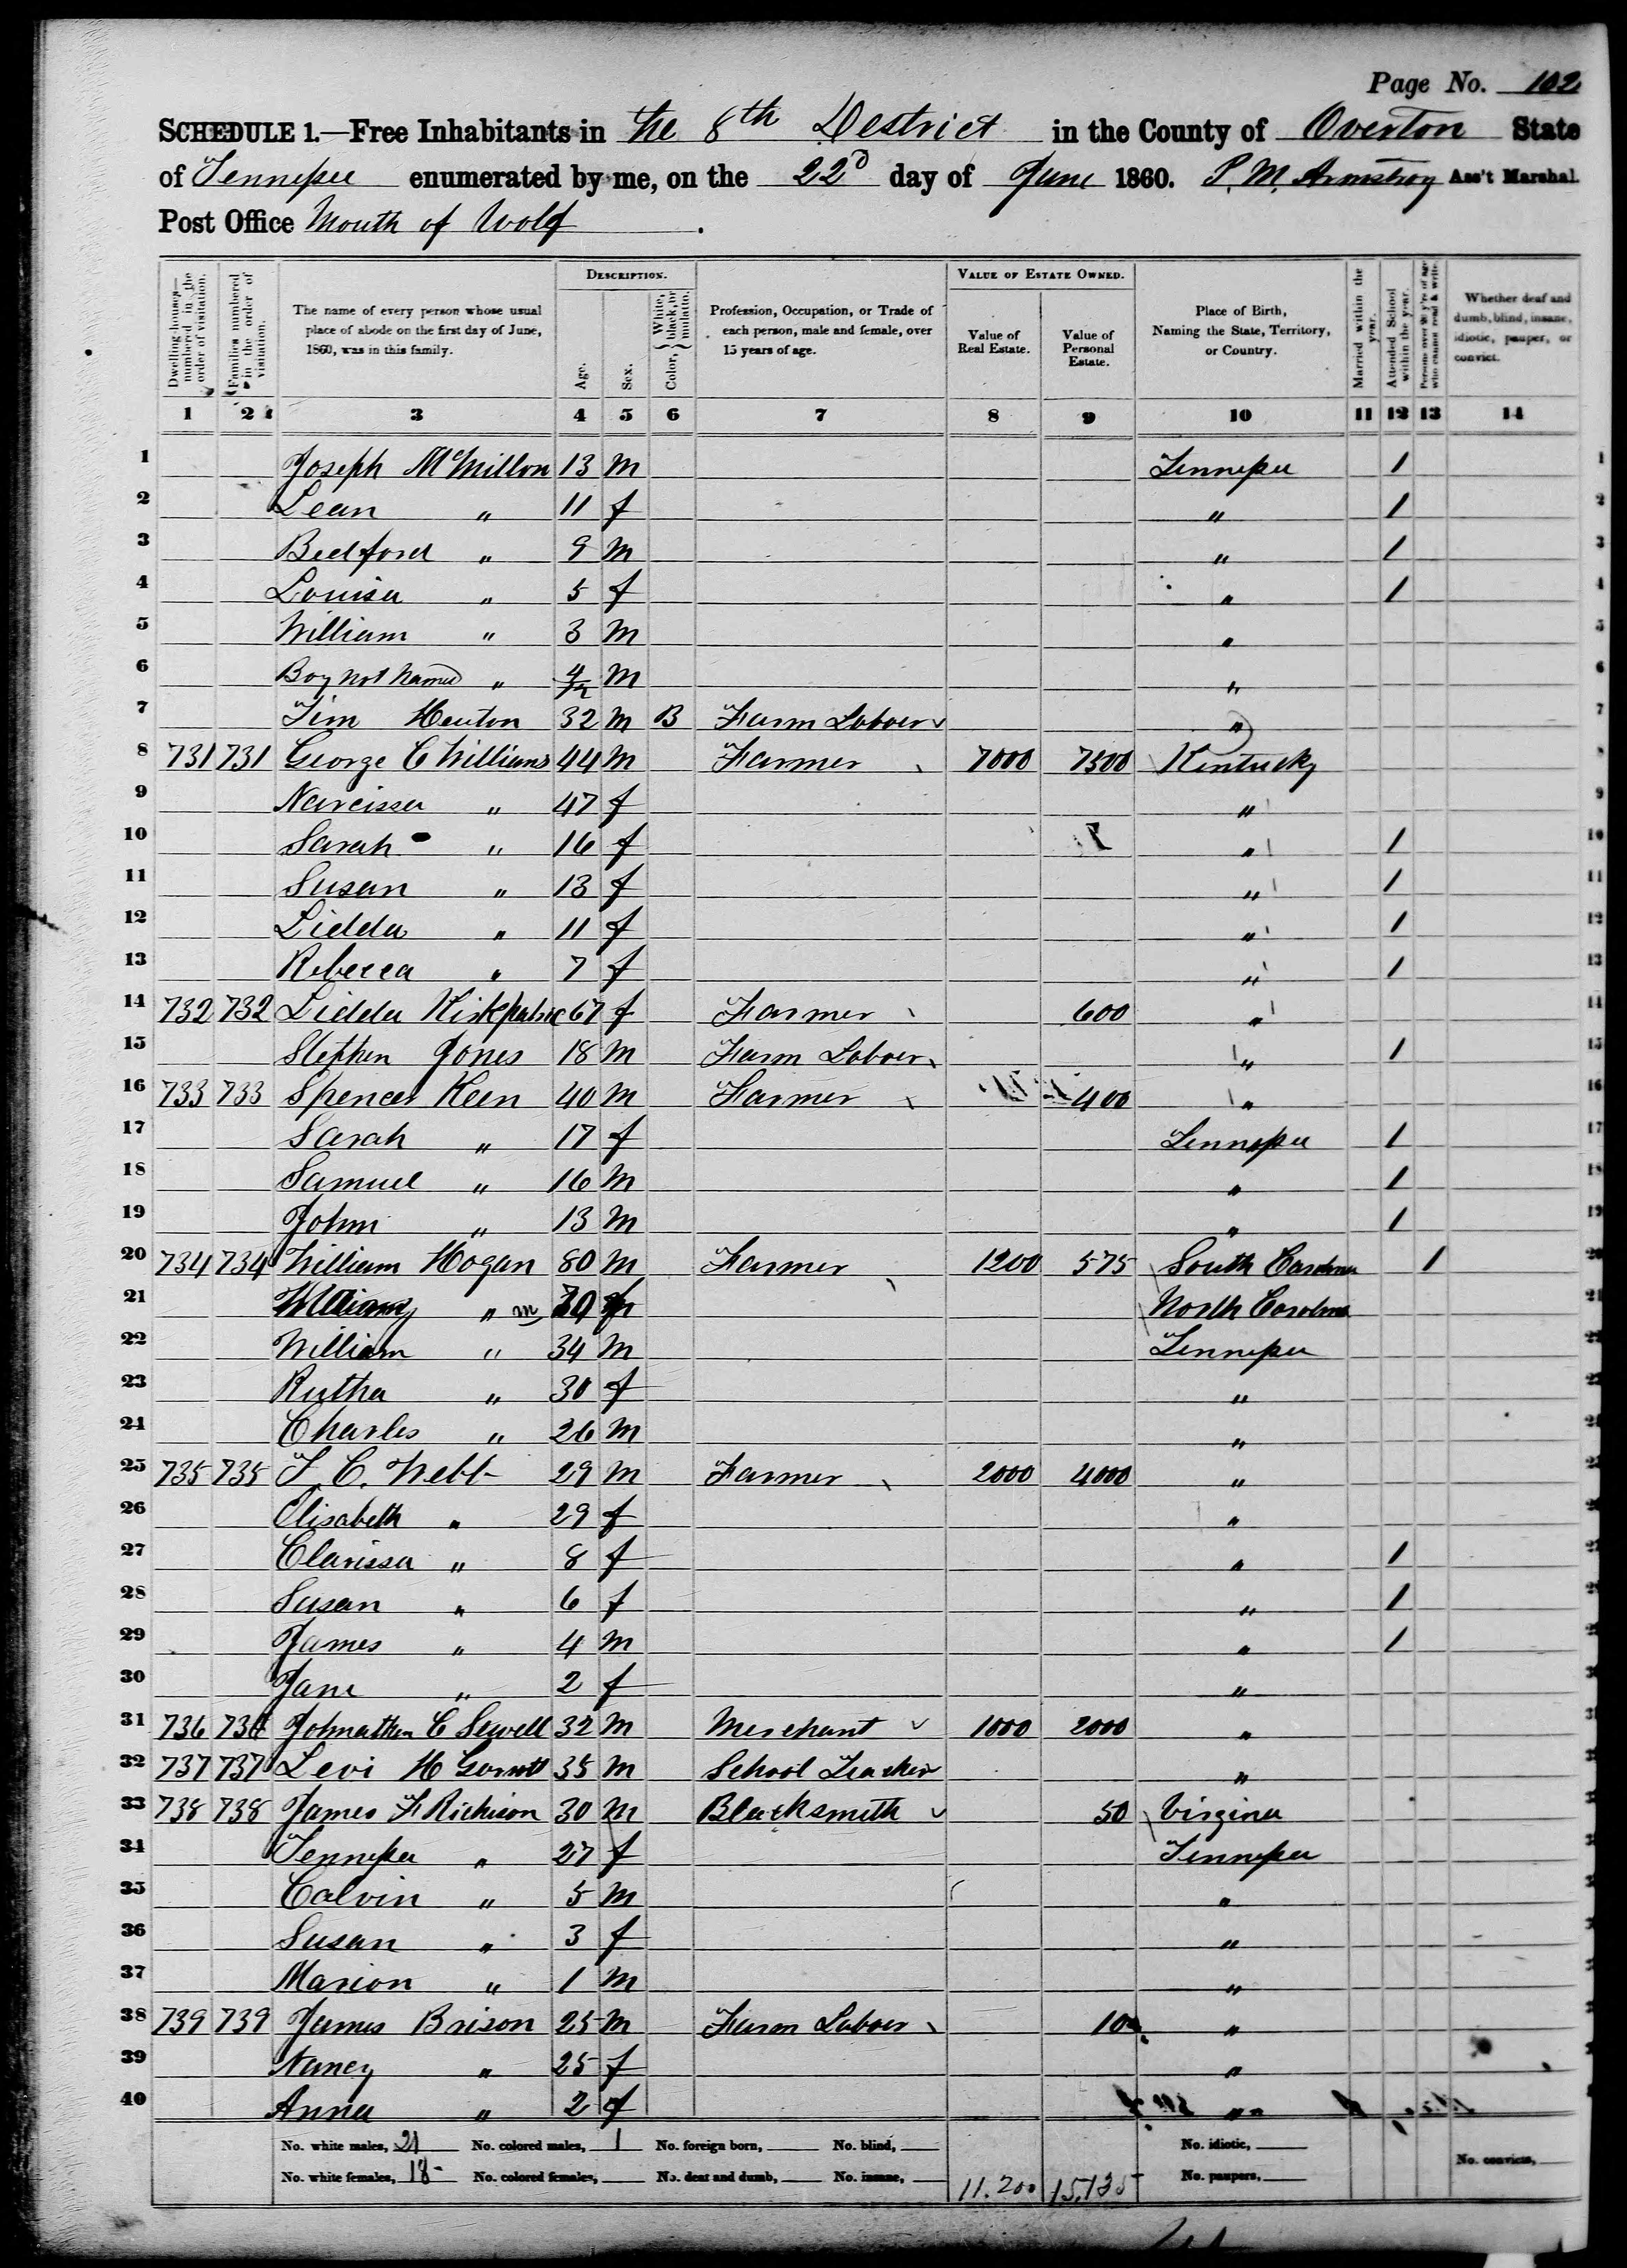 Page No. 102
SCHEDULE 1.—Free Inhabitants in the 8th Destrict in the County of Overton State
of Tennessee enumerated by me, on the 22d day of June 1860. P. M. Armstrong Ass't Marshal.
Post Office Mouth of Wolf.
DESCRIPTION. VALUE OF ESTATE OWNED.
Dwelling-houses—numbered in the order of visitation. Families numbered in the order of visitation. The name of every person whose usual place of abode on the first day of June, 1860, was in this family. Age. Sex. Color, {White, black, or mulatto. Profession, Occupation, or Trade of each person, male and female, over 15 years of age. Value of Real Estate. Value of Personal Estate. Place of Birth, Naming the State, Territory, or Country. Married within the year. Attended School within the year. Persons over 20 y'rs of age who cannot read & write. Whether deaf and dumb, blind, insane, idiotic, pauper, or convict.
1 2 3 4 5 6 7 8 9 10 11 12 13 14
1 Joseph McMillon 13 m Tennessee 1 1
2 Lean " 11 f " 1 2
3 Bedford " 9 m " 1 3
4 Louisa " 5 f " 1 4
5 William " 3 m " 5
6 Boy not named " 4/12 m " 6
7 Tim Heuton 32 m B Farm Laboer " 7
8 731 731 George C Williams 44 m Farmer 7000 7300 Kentucky 8
9 Narcissa " 47 f " 9
10 Sarah " 16 f " 1 10
11 Susan " 13 f " 1 11
12 Lidda " 11 f " 1 12
13 Rebecca " 7 f " 1 13
14 732 732 Lidda Kirkpatric 67 f Farmer 600 " 14
15 Stephen Jones 18 m Farm Laboer " 1 15
16 733 733 Spencer Keen 40 m Farmer 400 " 16
17 Sarah " 17 f Tennessee 1 17
18 Samuel " 16 m " 1 18
19 John " 13 m " 1 19
20 734 734 William Hogan 80 m Farmer 1200 575 South Carolina 1 20
21 " North Carolina 21
22 William " 34 m Tennessee 22
23 Rutha " 30 f " 23
24 Charles " 26 m "
25 735 735 T. C. Webb 29 m Farmer 2000 4000 "
26 Elisabeth " 29 f "
27 Clarissa " 8 f " 1
28 Susan " 6 f " 1
29 James " 4 m " 1
30 Jane " 2 f "
31 736 736 Johnathan C Sewell 32 m Merchant 1000 2000 "
32 737 737 Levi H Garrott 35 m School Teacher "
33 738 738 James F Richison 30 m Blacksmith 50 Virginia
34 Tennessee " 27 f Tennessee
35 Calvin " 5 m "
36 Susan " 3 f "
37 Marion " 1 m "
38 739 739 James Brison 25 m Farm Laboer "
39 Nancy " 25 f "
40 Anna " 2 f "
No. white males, 21 No. colored males, 1 No. foreign born, No. blind, No. idiotic,
No. white females, 18 No. colored females, No. deaf and dumb, No. insane, 11.200 No. paupers, No. convicts,